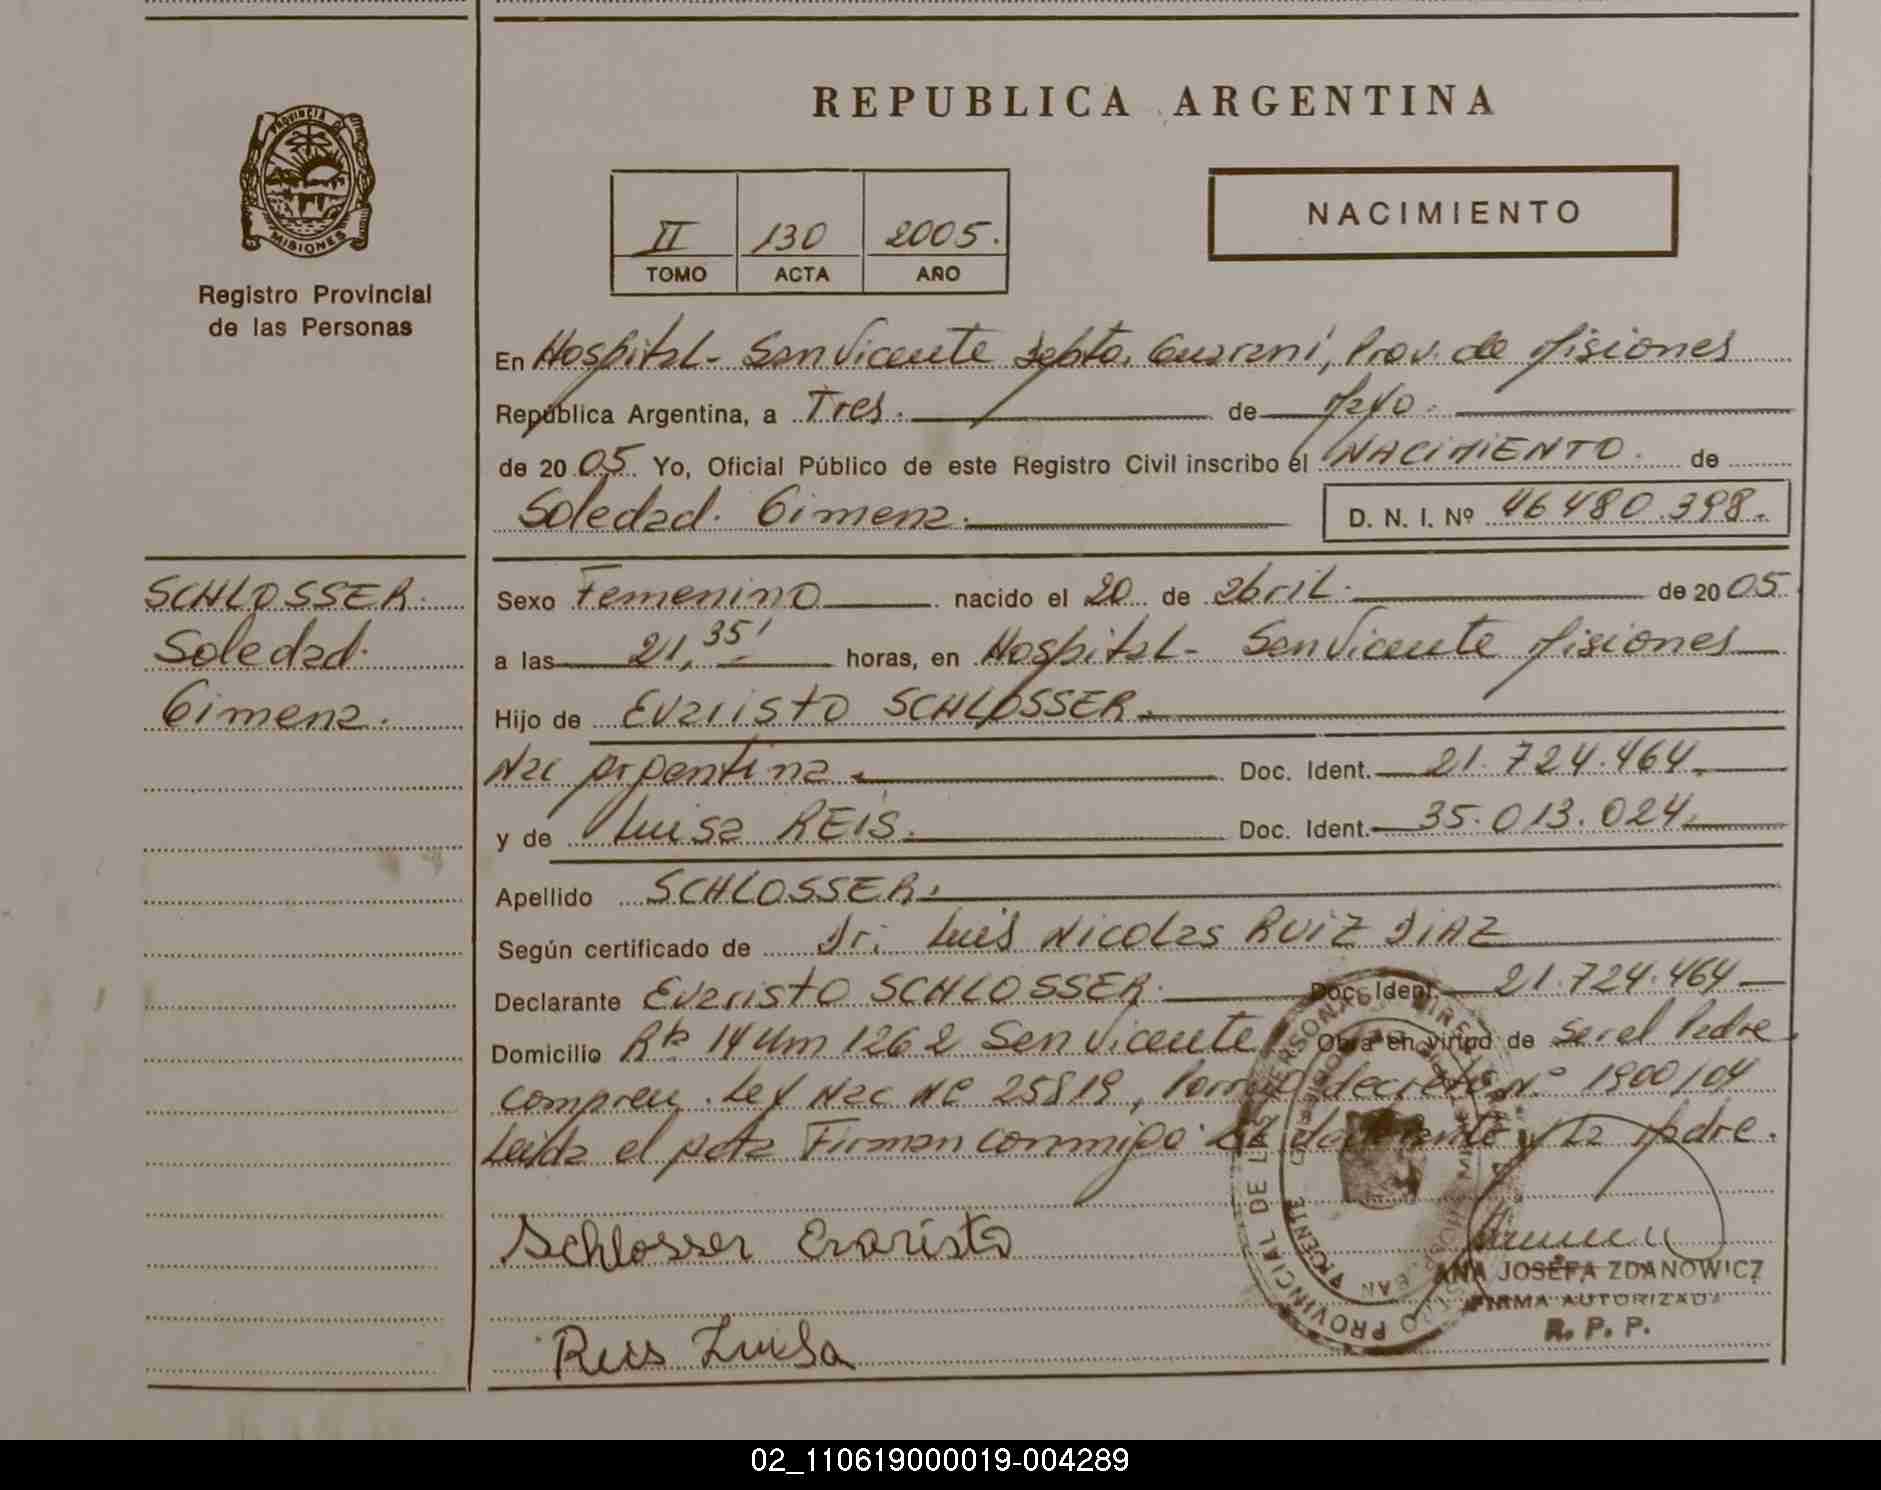 REPUBLICA ARGENTINA
PROVINCIA DE
MISIONES
Registro Provincial
de las Personas
II 130 2005.
TOMO ACTA AÑO
NACIMIENTO
En Hospital - San Vicente Depto. Guarani, Prov. de Misiones
República Argentina, a Tres. de Mayo.
de 2005. Yo, Oficial Público de este Registro Civil inscribo el NACIMIENTO. de
Soledad. Gimena.
D. N. I. Nº 46480.398.
SCHLOSSER.
Soledad.
Gimena.
Sexo Femenino nacido el 20 de abril. de 2005.
a las 21,35' horas, en Hospital - San Vicente Misiones
Hijo de Evaristo SCHLOSSER.
Nac Argentina. Doc. Ident. 21.724.464.
y de Luisa REIS. Doc. Ident. 35.013.024.
Apellido SCHLOSSER.
Según certificado de Dr. Luis Nicolas RUIZ DIAZ
Declarante Evaristo SCHLOSSER. Doc. Ident. 21.724.464
Domicilio Rta 14 Km 1262 San Vicente Obra en virtud de Ser el Padre
compren. Ley Nac Nº 25819, decreto Nº 1900/04
Leida el acta Firman conmigo El declarante y la Madre.
Schlosser Evaristo
Reis Luisa
PROVINCIAL DE LAS PERSONAS
SAN VICENTE
ANA JOSEFA ZDANOWICZ
FIRMA AUTORIZADA
R. P. P.
02_110619000019-004289